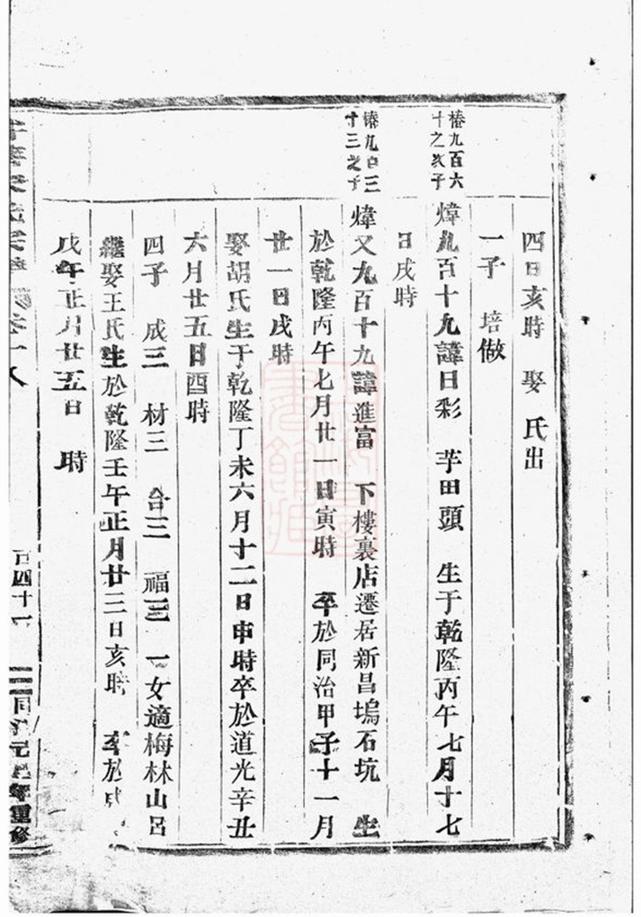 四日亥時 娶 氏出
一子 培做
椿九百六
十之次子
煒九百十九諱日彩 芋田頭 生于乾隆丙午七月十七
日戌時
椿九百三
十三之子
煒又九百十九諱進富 下樓裏店遷居新昌塢石坑 生
於乾隆丙午七月廿一日寅時 卒於同治甲子十一月
廿一日戌時
娶胡氏生于乾隆丁未六月十二日申時卒於道光辛丑
六月廿五日酉時
四子 成三 材三 合三 福三 一女適梅林山呂
繼娶王氏生於乾隆壬午正月廿三日亥時 卒於
戊午正月廿五日 時
卷十八
百四十一
同治元年重修